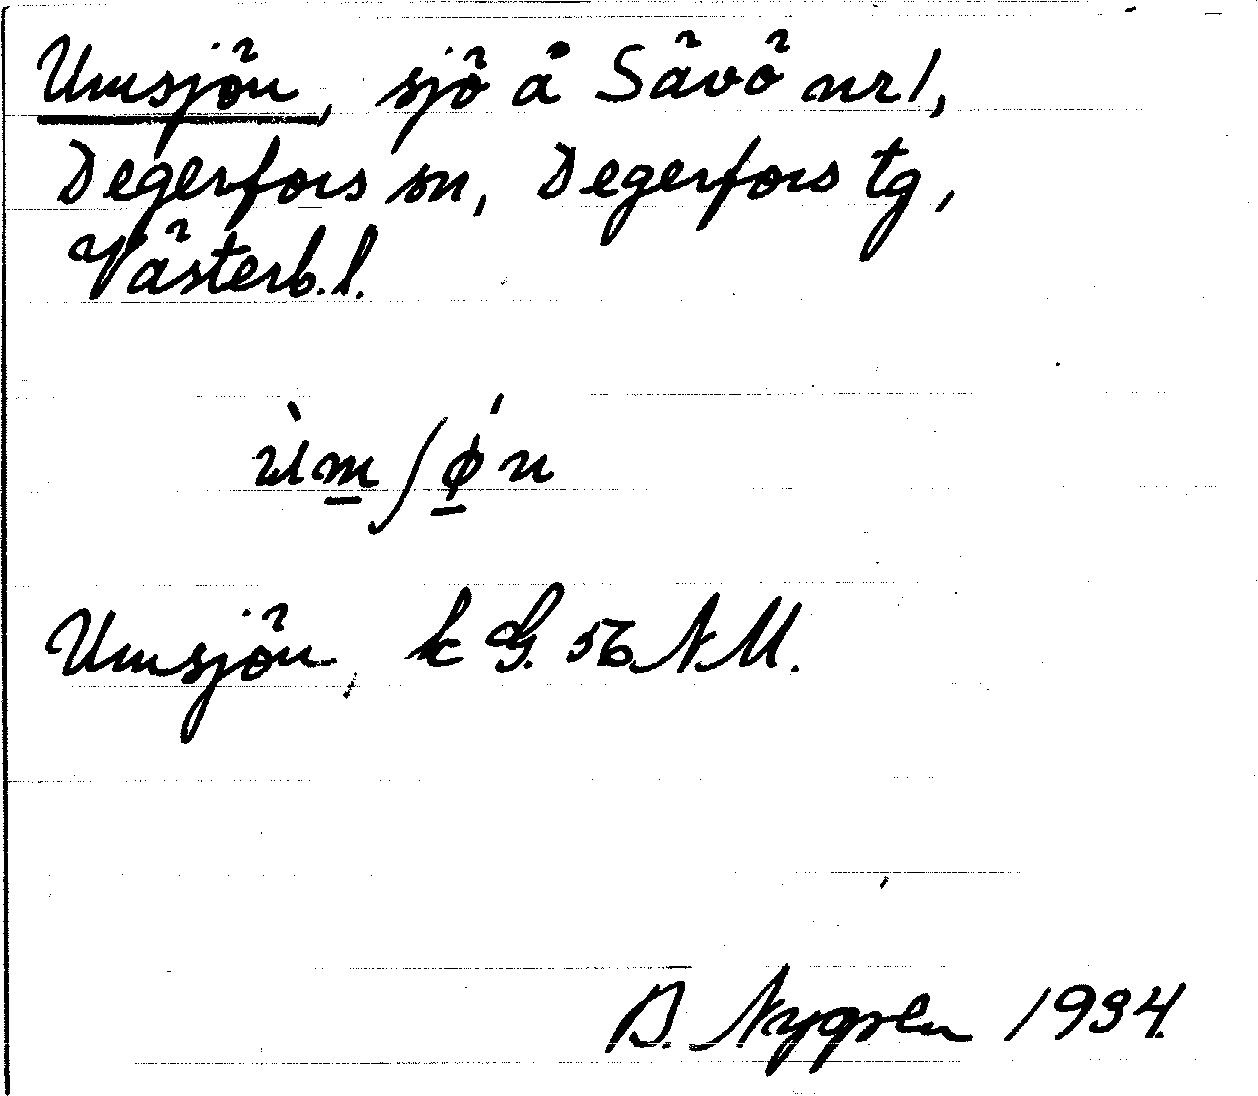 Umsjön, sjö å Sävö nr 1,
Degerfors sn, Degerfors tg,
Västerb. l.
ùm̲ʃǿ̲n
Umsjön, k G. 56 NM.
B. Nygren 1934.